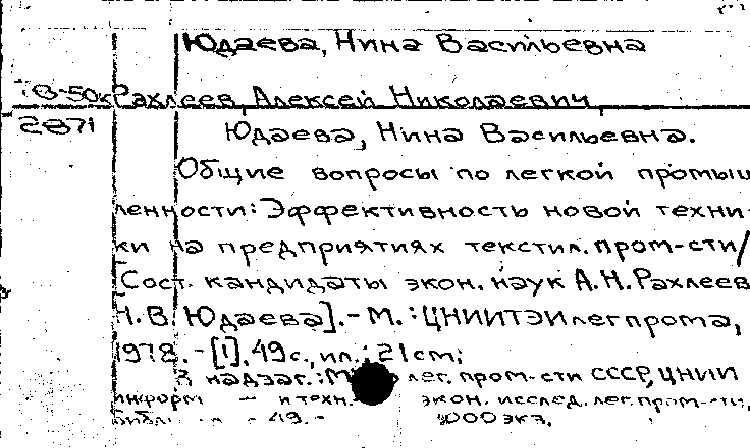 Юдаева, Нина Васильевна
Рахлеев Алексей Николаевич
Юдаева, Нина Васильевна.
Общие вопросы по легкой промыш
ленности: Эффективность новой техни-
ки на предприятиях текстил. пром-сти/
[Сост. кандидаты экон. наук А.Н. Рахлеев
Н.В. Юдаева]. - М. : ЦНИИТЭИлегпрома,
1978. - [1], 49 с., ил.; 21 см;
В надзаг.: лег. пром-сти СССР, ЦНИИ
информ и техн. экон. исслед. лег. пром-сти,
49. - экз.